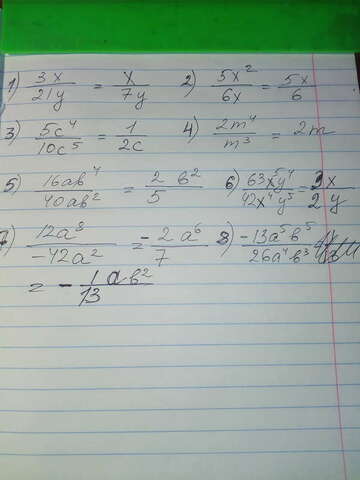 1) 3x/21y = x/7y 2) 5x²/6x = 5x/6
3) 5c⁴/10c⁵ = 1/2c 4) 2m⁴/m³ = 2m
5) 16ab⁴/40ab² = 2b²/5 6) 63x⁵y⁴/42x⁴y⁵ = 3x/2y
7) 12a⁸/-42a² = -2a⁶/7 8) -13a⁵b⁵/26a⁴b³
= -1/13 ab²